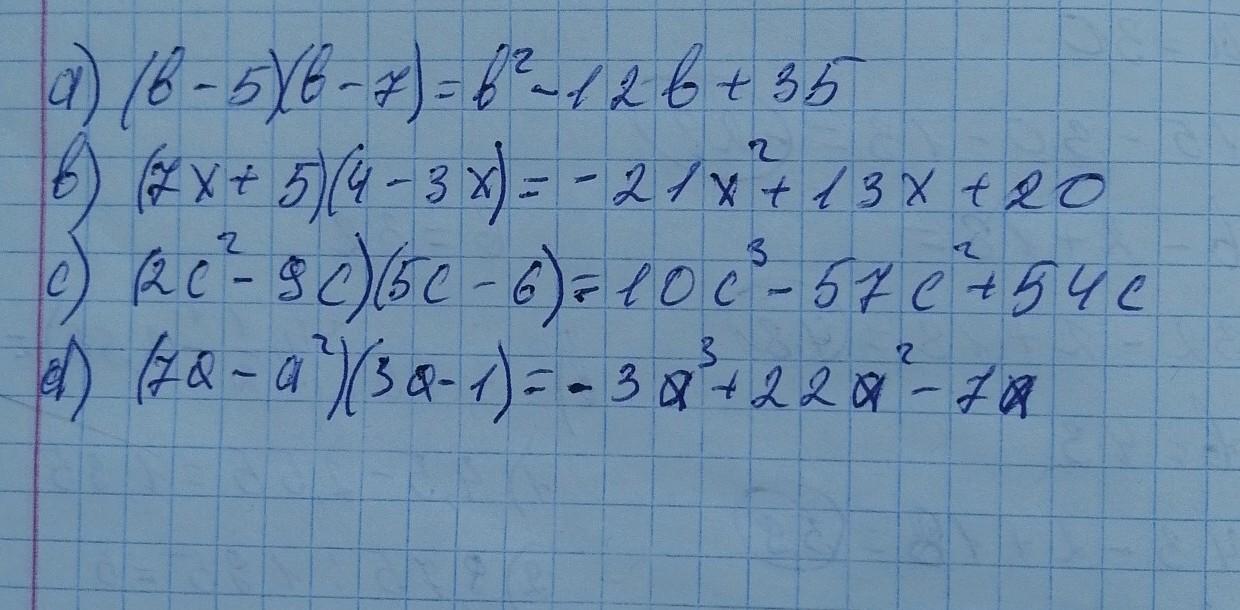 a) (b - 5)(b - 7) = b² - 12b + 35
b) (7x + 5)(4 - 3x) = - 21x² + 13x + 20
c) (2c² - 9c)(5c - 6) = 10c³ - 57c² + 54c
d) (7a - a²)(3a - 1) = - 3a³ + 22a² - 7a